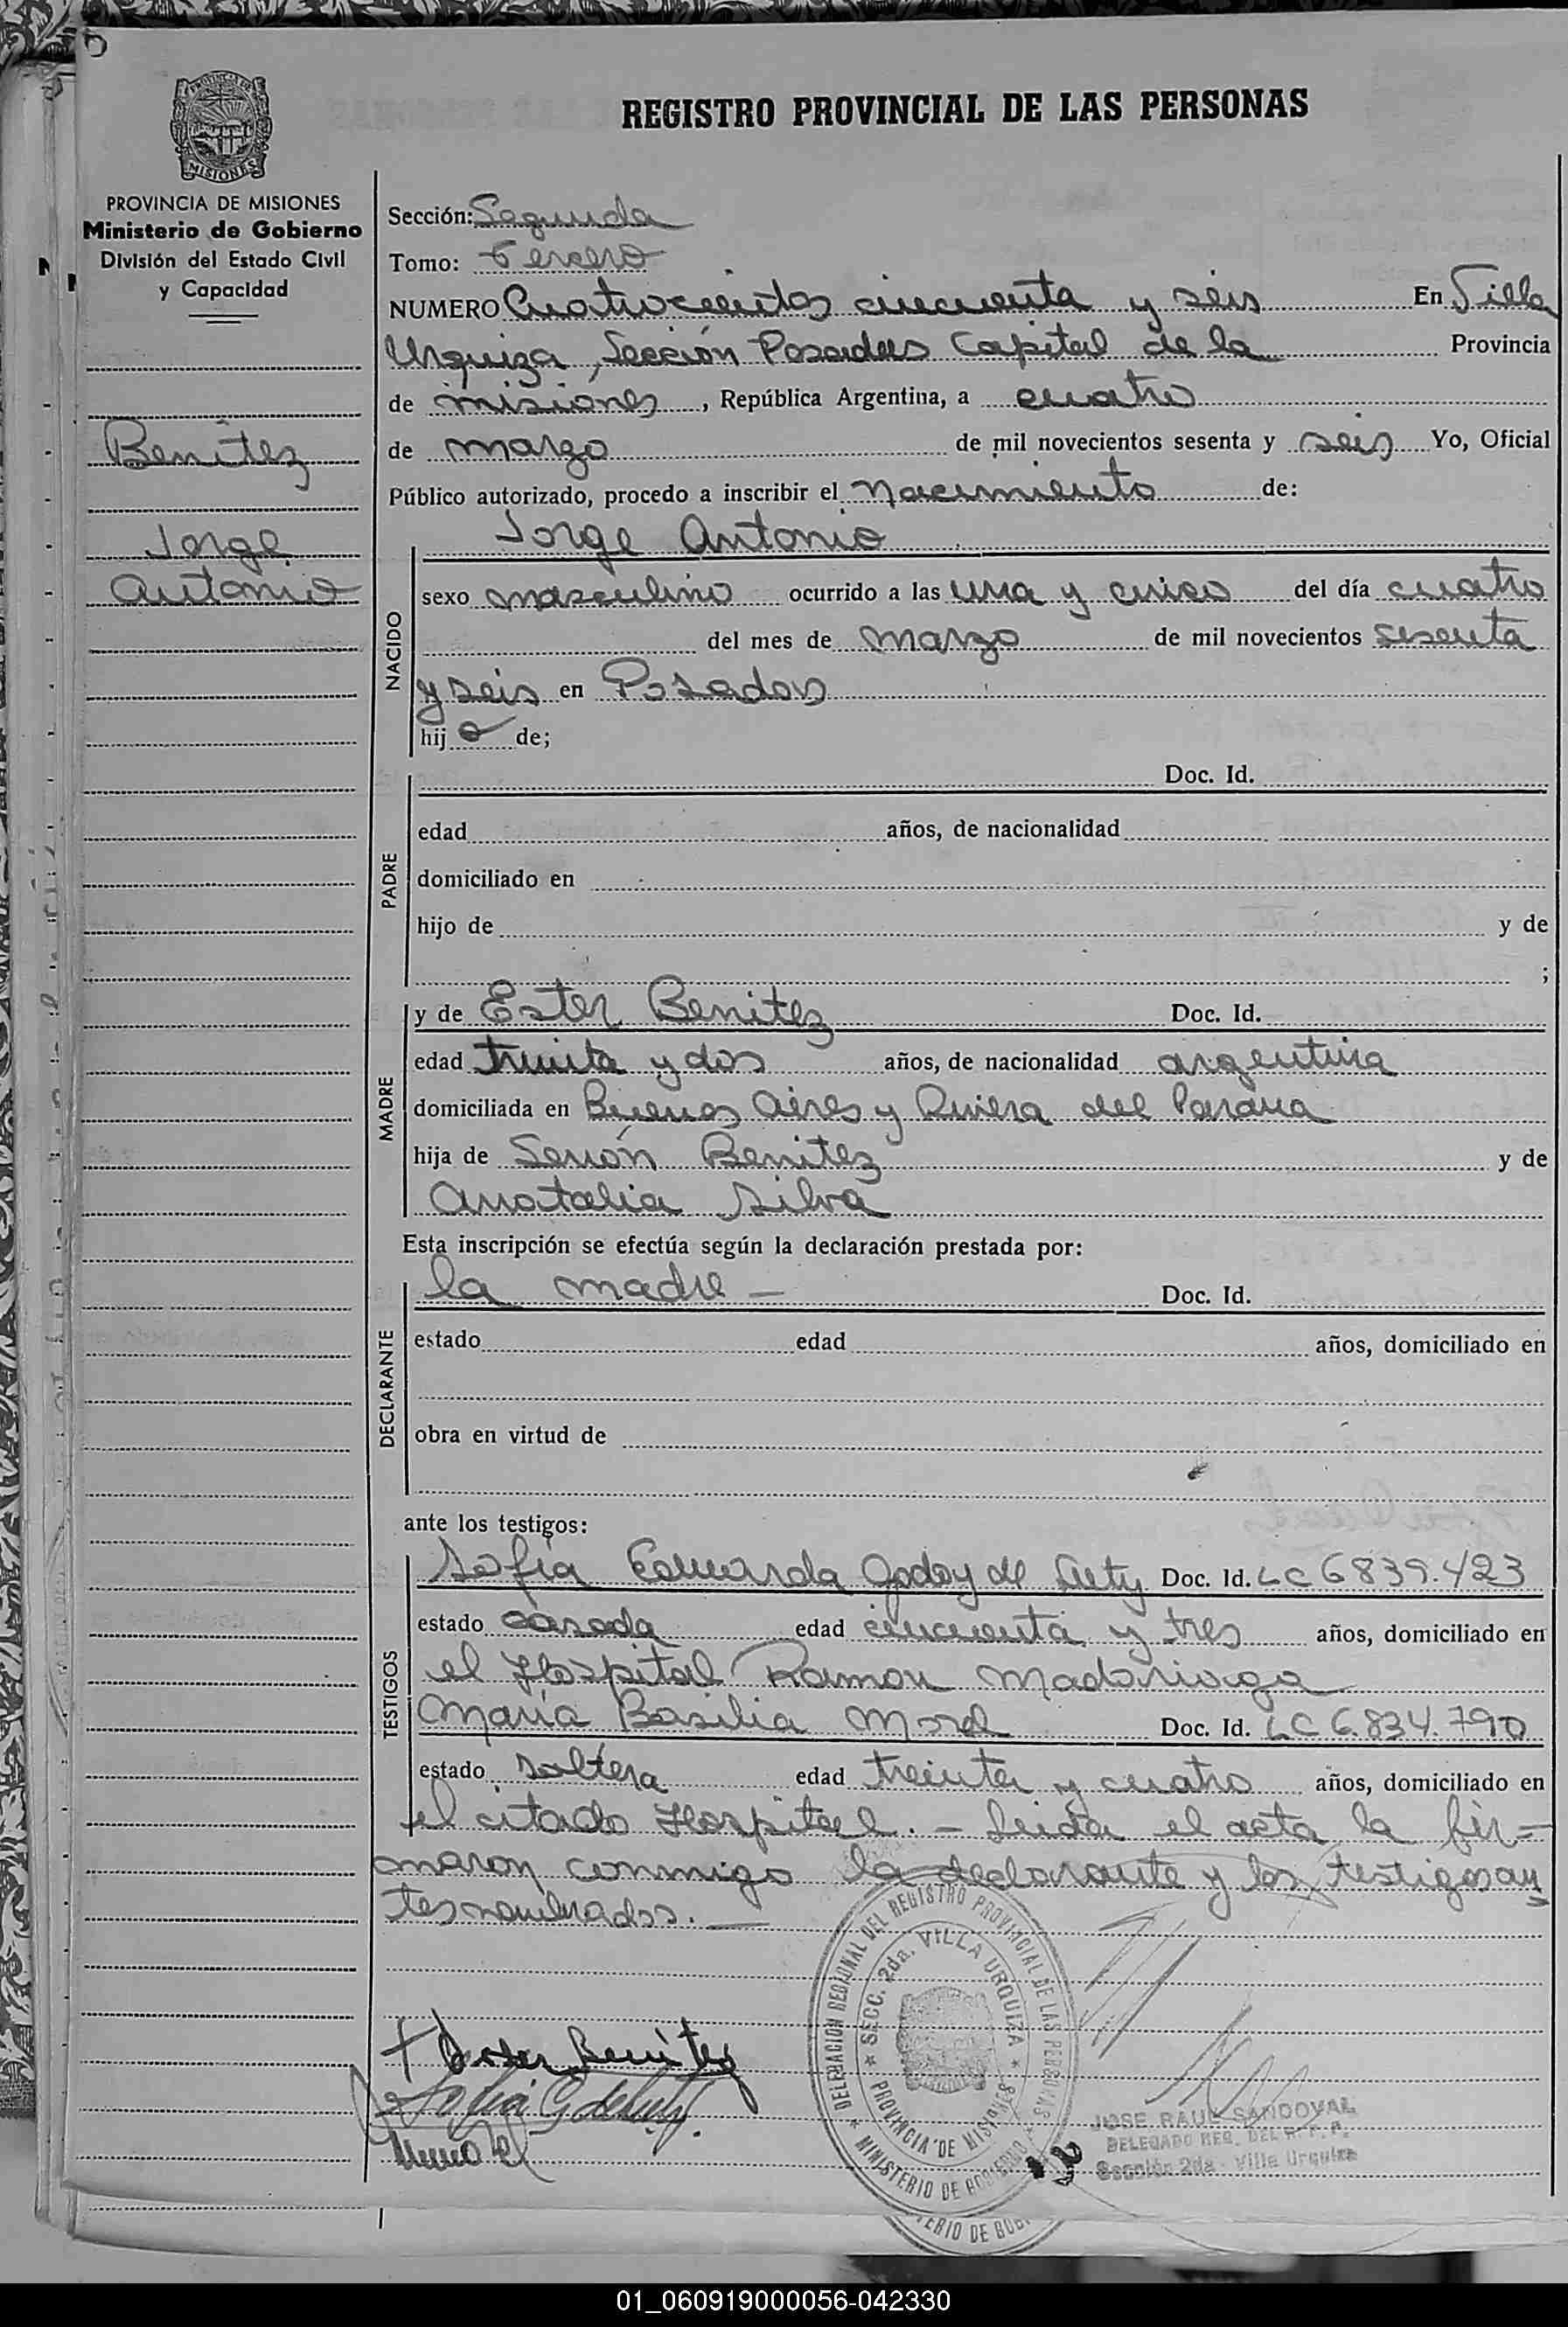 REGISTRO PROVINCIAL DE LAS PERSONAS
MISIONES
PROVINCIA DE MISIONES
Ministerio de Gobierno
División del Estado Civil
y Capacidad
Benítez
Jorge
Antonio
Sección: Segunda
Tomo: Tercero
NUMERO Cuatrocientos cincuenta y seis En Villa
Urquiza, Sección Posadas Capital de la Provincia
de misiones, República Argentina, a cuatro
de marzo de mil novecientos sesenta y seis Yo, Oficial
Público autorizado, procedo a inscribir el Nacimiento de:
Jorge Antonio
NACIDO
sexo masculino ocurrido a las una y cinco del día cuatro
del mes de marzo de mil novecientos sesenta
y seis en Posadas
hij o de;
PADRE
Doc. Id.
edad años, de nacionalidad
domiciliado en
hijo de y de
;
MADRE
y de Ester Benitez Doc. Id.
edad treinta y dos años, de nacionalidad argentina
domiciliada en Buenos Aires y Rivera del Parana
hija de Benitez y de
Anatalia Silva
Esta inscripción se efectúa según la declaración prestada por:
DECLARANTE
la madre — Doc. Id.
estado edad años, domiciliado en
obra en virtud de
ante los testigos:
TESTIGOS
Sofia Eduarda Godoy de Doc. Id. LC 6839.423
estado casada edad cincuenta y tres años, domiciliado en
el Hospital Ramon Madariaga
María Basilia Morel Doc. Id. LC 6.834.790
estado soltera edad treinta y cuatro años, domiciliado en
el citado Hospital. — Leida el acta la fir=
maron conmigo la declarante y los testigos an
tes nombrados. —
Ester Benitez
DELEGACION REGIONAL DEL REGISTRO PROVINCIAL DE LAS PERSONAS
SECC. 2da. VILLA URQUIZA
PROVINCIA DE MISIONES
MINISTERIO DE GOBIERNO
JOSE RAUL SANDOVAL
DELEGADO REG. DEL R. P. P.
Sección 2da - Villa Urquiza
01_060919000056-042330